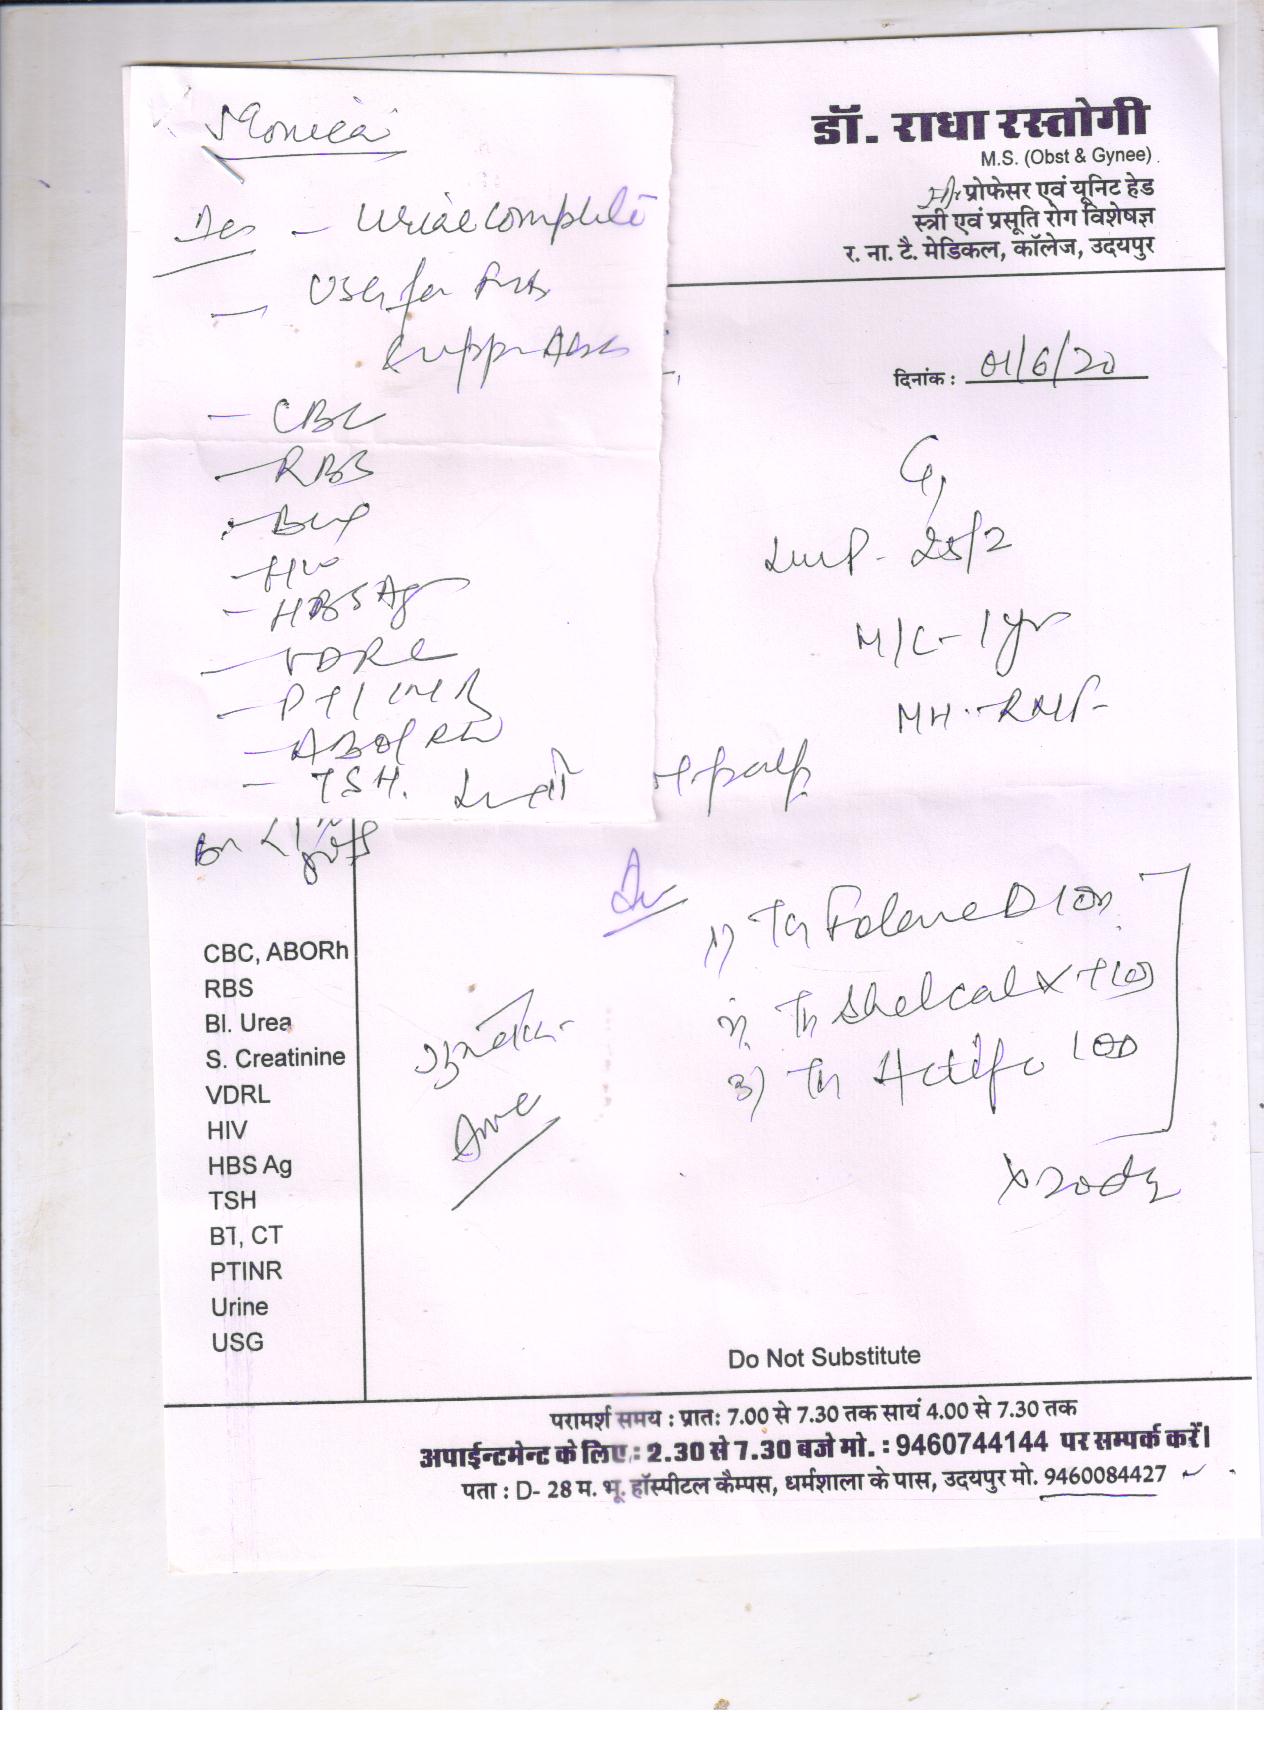 Monica
Urine complete
USG for
CBC
RBS
HIV
HBSAg
VDRL
PT/INR
ABO/Rh
TSH.
डॉ. राधा रस्तोगी
M.S. (Obst & Gynee)
प्रोफेसर एवं यूनिट हेड
स्त्री एवं प्रसूति रोग विशेषज्ञ
र. ना. टै. मेडिकल, कॉलेज, उदयपुर
दिनांक : 01/6/20
G1
LMP - 25/2
M/C - 1 yr
MH - RMP
Adv
1) Folene D 1OD
2) Shelcal XT 1OD
3) Actifo 1OD
CBC, ABORh
RBS
Bl. Urea
S. Creatinine
VDRL
HIV
HBS Ag
TSH
BT, CT
PTINR
Urine
USG
Do Not Substitute
परामर्श समय : प्रातः 7.00 से 7.30 तक सायं 4.00 से 7.30 तक
अपाईन्टमेन्ट के लिए : 2.30 से 7.30 बजे मो. : 9460744144 पर सम्पर्क करें।
पता : D- 28 म. भू. हॉस्पीटल कैम्पस, धर्मशाला के पास, उदयपुर मो. 9460084427